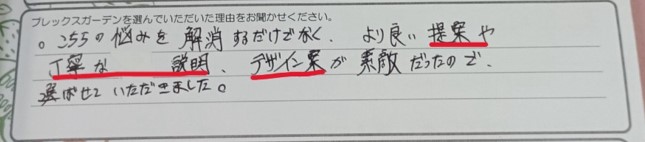 プレックスガーデンを選んでいただいた理由をお聞かせください。
。こちらの悩みを解消するだけでなく、より良い提案や
丁寧な 説明、デザイン案が素敵だったので、
選ばせていただきました。